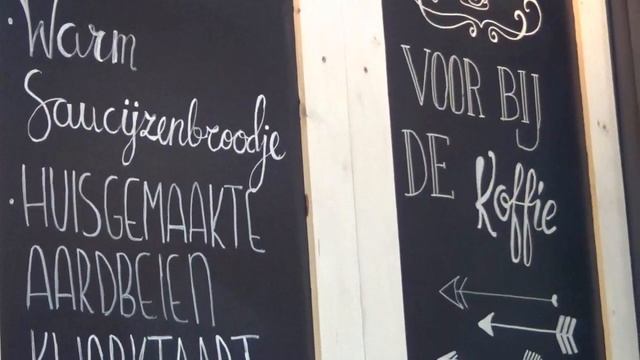 · Warm
Saucijzenbroodje
· HUISGEMAAKTE
AARDBEIEN
KWARKTAART
VOOR BIJ
DE Koffie